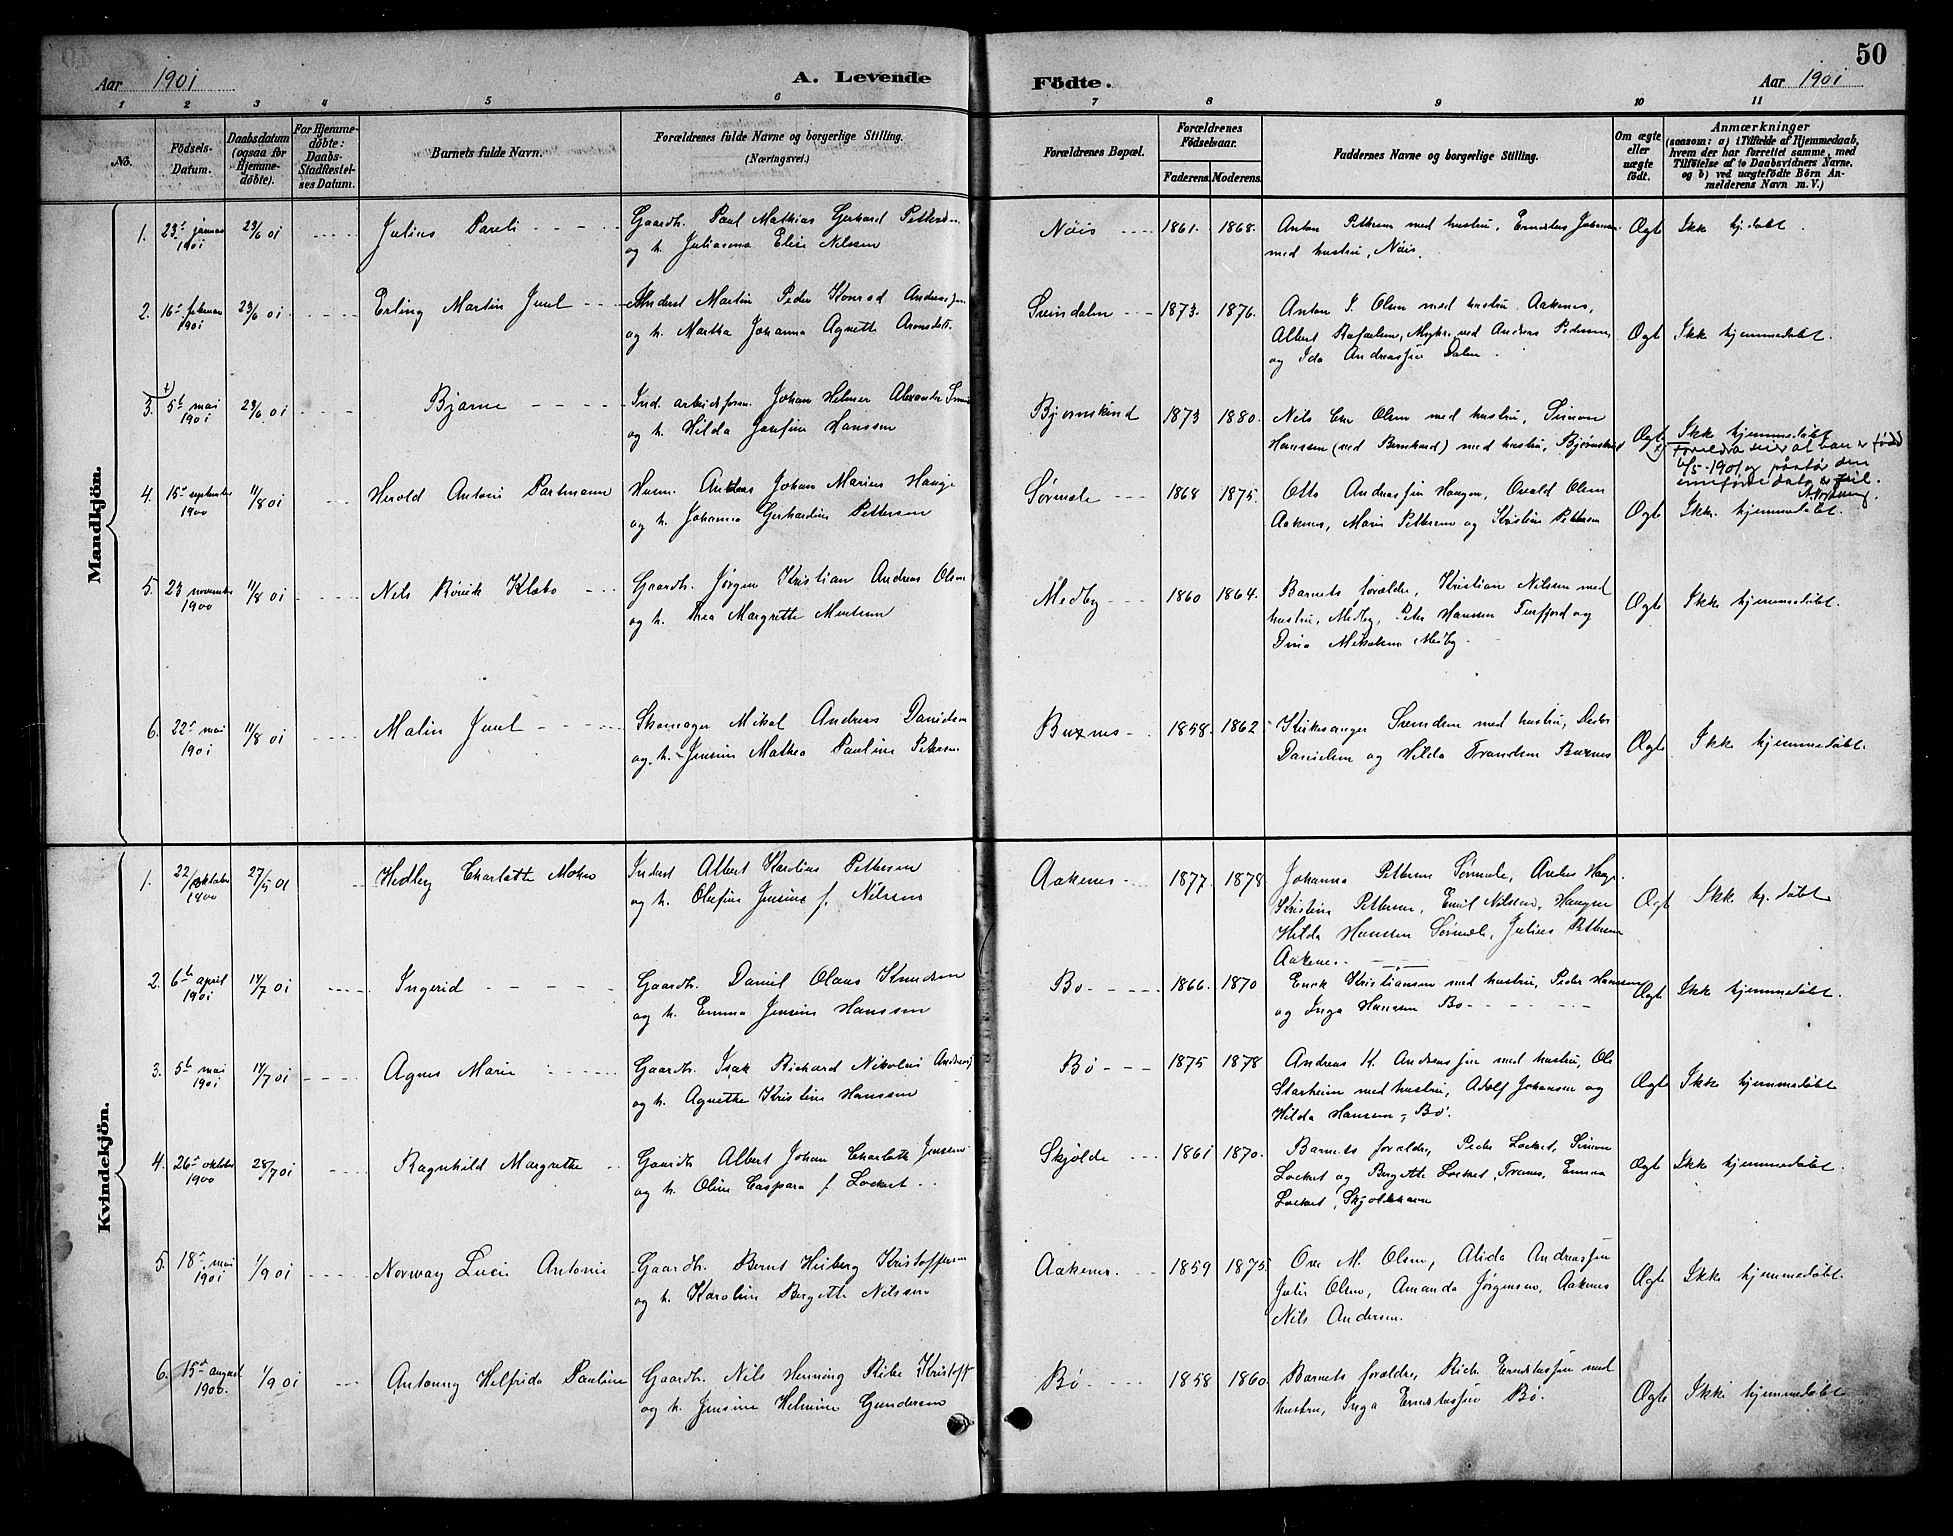 50
Aar 1901 A. Levende Födte. Aar 1901
1 2 3 4 5 6 7 8 9 10 11
No.
Födsels-
Datum.
Daabsdatum
(ogsaa for
Hjemme-
döbte).
For Hjemme-
döbte:
Daabs-
Stadfestel-
ses Datum.
Barnets fulde Navn.
Forældrenes fulde Navne og borgerlige Stilling.
(Næringsvei.)
Forældrenes Bopæl.
Forældrenes
Födselsaar.
Faderens. Moderens.
Faddernes Navne og borgerlige Stilling.
Om ægte
eller
uægte
födt.
Anmærkninger
(saasom: a) i Tilfælde af Hjemmedaab,
hvem der har forrettet samme, med
Tilföielse af to Daabsvidners Navne,
og b) ved uægtefödte Börn An-
melderens Navn m. V.)
Mandkjön.
1. 23. januar 1901 23/6 01 Julius Pareli
Gaardb. Paul Mathias Gerhard Petters
og h. Julianna Elise Nilssen
Nöis 1861. 1868.
Anton Pettersen med hustru, Ernestus Johansen
med hustru, Nöis.
Ægte Ikke hj.döbt.
2. 16 februar 1901 23/6 01 Erling Martin Juul
Inderst Martin Peder Konrad Andreassen
og h. Martha Johanna Agnette Arondts.
Svendalen 1873. 1876.
Anton J. Olsen med hustru, Aakenes,
Albert Rafaelsen, Myhre, ved Anders Pedersen,
og Ida Andreassen Dalen.
Ægte Ikke hjemmedöbt.
3. 5t mai 1901 23/6 01 Bjarne
Ind. arbeidsform. Johan Helmer Alexander
og h. Hilda Josefine Hanssen
Bjørnskind 1873 1880.
Nils Chr Olsen med hustru, Simon
Hanssen (ved Bernhard) med hustru, Bjørnskind
Ægte Ikke hjemmedöbt
Foreldra sier at han er född
6/5-1901 og påstår den
innførte dato er feil.
4. 15 september 1900 11/8 01 Herold Antoni Partmann
Husm. Anders Johan Marius Hauge
og h. Johanna Gerhardine Pettersen
Sörmela 1868 1875.
Otto Andreassen Haugen, Osvald Olsen
Aakenes, Marie Pettersen og Kristine Pettersen
Ægte Ikke hjemmedöbt.
5. 23 november 1900 11/8 01 Nils Rörvik Klæbo
Gaardb. Jørgen Kristian Andreas Olsen
og h. Thea Margrethe Mentsen
Medby 1860 1864.
Barnets forældre, Kristian Nilsen med
hustru, Medby, Peter Hanssen Finfjord og
Dina Mikalsen Medby.
Ægte Ikke hjemmedöbt.
6. 22 mai 1901 11/8 01 Malin Juul
Skomager Mikal Andreas Danielsen
og h. Jensine Mathea Pauline Petersen
Buxnes 1858. 1862
Kirkesanger Svendsen med hustru, Peder
Danielsen og Hilda Trondsen Buxnes
Ægte Ikke hjemmedöbt.
Kvindekjön.
1. 22/oktober 1900 27/5 01 Hedley Charlotte
Inderst Albert Karolius Pettersen
og h. Olufine Jensine f. Nilssen
Aakenes 1877. 1878
Johanna Pettersen Sörmela, Anders Hauge.
Kristine Pettersen, Emil Nilssen, Haugen
Hilda Hanssen Sörmela, Julius Pettersen
Aakenes.
Ægte Ikke hj.döbt.
2. 6te april 1901 14/7 01 Ingerid
Gaardb. Daniel Olaus Knudsen
og h. Emma Jensine Hanssen
Bö 1866. 1870
Enok Kristiansen med hustru, Peder Hanssen
og Inga Hanssen Bö
Ægte Ikke hjemmedöbt.
3. 5te mai 1901 14/7 01 Agnes Marie
Gaardb. Isak Richard Nikolai Andreas
og h. Agnethe Kristine Hanssen
Bö 1875 1878
Andreas K. Andreassen med hustru, Ole
Starheim med hustru, Adolf Johansen og
Hilda Hansen, Bö.
Ægte Ikke hjemmedöbt
4. 26 oktober 1900 28/7 01 Ragnhild Margrethe
Gaardb. Albert Johan Charlath Jenssen
og h. Oline Caspara f. Lockert
Skjolde 1861 1870.
Barnets forældre, Peder Lockert, Simon
Lockert og Bergette Lockert, Trones, Emma
Lockert, Skjoldehavn
Ægte Ikke hjemmedöbt.
5. 18. mai 1901 1/9 01 Norway Lucie Antonie
Gaardb. Bernt Heiberg Kristoffersen
og h. Karoline Bergette Nilssen
Aakenes. 1859 1875.
Ove M. Olsen, Alida Andreassen
Julie Olsen, Amanda Jørgensen, Aakenes
Nils Andersen.
Ægte Ikke hjemmedöbt.
6. 15. august 1900. 1/9 01 Antonny Helfrida Pauline
Gaardb. Nils Henning Ribe Kristoff
og h. Jensine Helmine Gundersen
Bö 1858 1860
Barnets forældre, Rich. Ernestussen med
hustru, Inga Ernestussen Bö.
Ægte Ikke hjemmedöbt